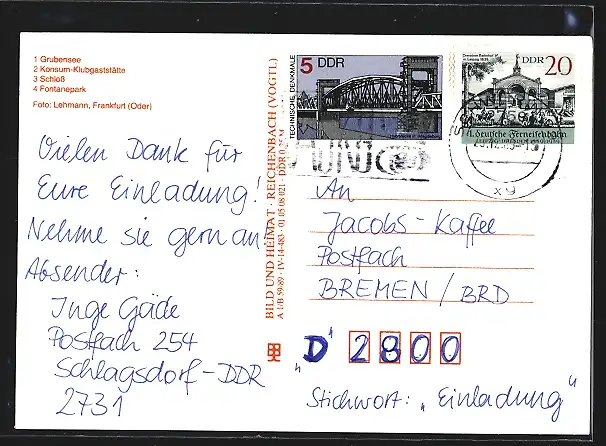 1 Grubensee
2 Konsum-Klubgaststätte
3 Schloß
4 Fontanepark
Foto: Lehmann, Frankfurt (Oder)
Vielen Dank für
Eure Einladung!
Nehme sie gern an!
Absender:
Inge Gäde
Postfach 254
Schlagsdorf-DDR
2731
BILD UND HEIMAT · REICHENBACH (VOGTL)
A 1/B 59/89 · IV-14-483 · 01 05 08 021 · DDR
5 DDR
TECHNISCHE DENKMALE
DDR 20
1. deutsche Ferneisenbahn
xy
An
Jacobs-Kaffee
Postfach
BREMEN / BRD
"D" 2800
Stichwort: „Einladung"